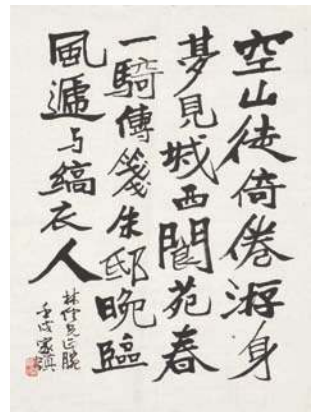 空山徒倚倦游身
夢見城西閬苑春
一騎傳箋朱邸晚臨
風遞与縞衣人
壬戌家滇